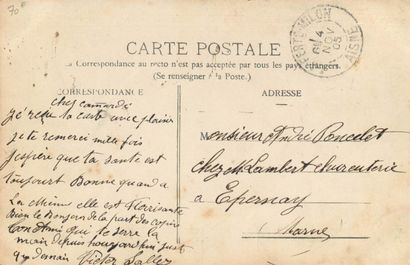 70
FERTÉ-MILON
4
NOV
05
AISNE
CARTE POSTALE
La Correspondance au recto n'est pas acceptée par tous les pays étrangers.
(Se renseigner à la Poste.)
CORRESPONDANCE
Cher camarade
j'ai reçu ta carte avec plaisir
je te remerci mille fois
J'espère que ta santé est
toujours Bonne quand a
La Mienne elle est Florissante
Bien le Bonjour de la part des copins
Ton Ami qui te serre la
main depuis aujourd'hui jusqu
qu demain Victor Salles
ADRESSE
Monsieur André Poncelet
chez M Lambert charcuterie
a Epernay
Marne